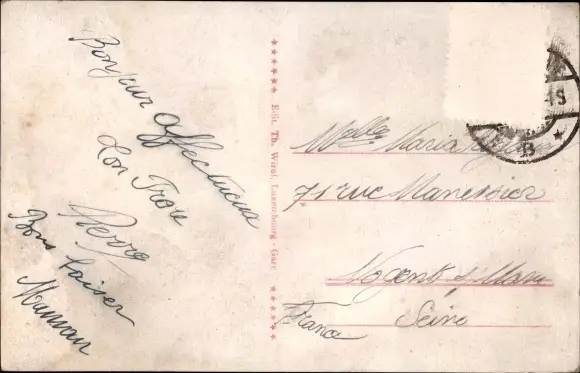 Bonjour affectueux
Ton Frère
Pierre
Bons baiser
Maman
****** Edit. Th. Wirol, Luxembourg-Gare ******
Melle Maria
71 rue Manessier
Nogent s/ Marne
Seine
France
B